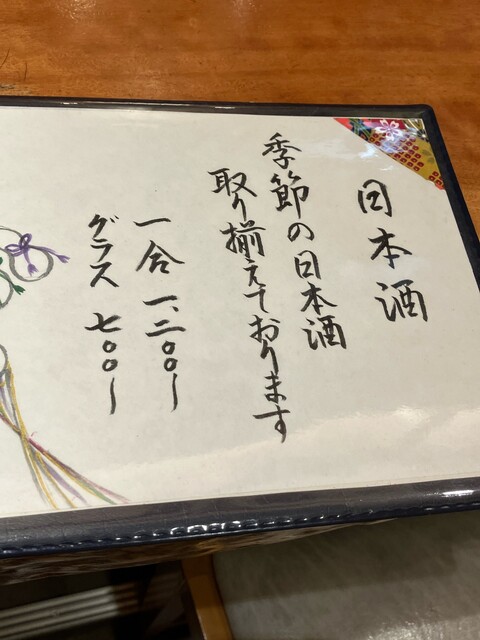 日本酒
季節の日本酒
取り揃えております
一合 一、二〇〇〜
グラス 七〇〇〜